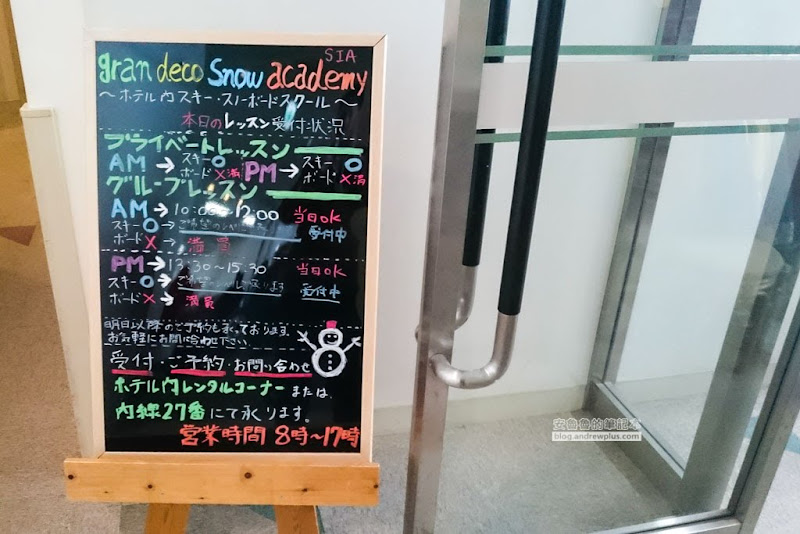 SIA
gran deco Snow academy
～ホテル内スキー・スノーボードスクール～
本日のレッスン受付状況
プライベートレッスン
AM→スキー○ ボード×満 PM→スキー○ ボード×満
グループレッスン
AM→10:00～12:00 当日OK
スキー○→ 受付中
ボード×→満員
PM→13:30～15:30 当日OK
スキー○→ 受付中
ボード×→満員
明日以降のご予約も承っております。
お気軽にお問い合わせ下さい。
受付・ご予約・お問い合わせ
ホテル内レンタルコーナーまたは、
内線27番にて承ります。
営業時間 8時～17時
安魯魯的筆記本
blog.andrewplus.com